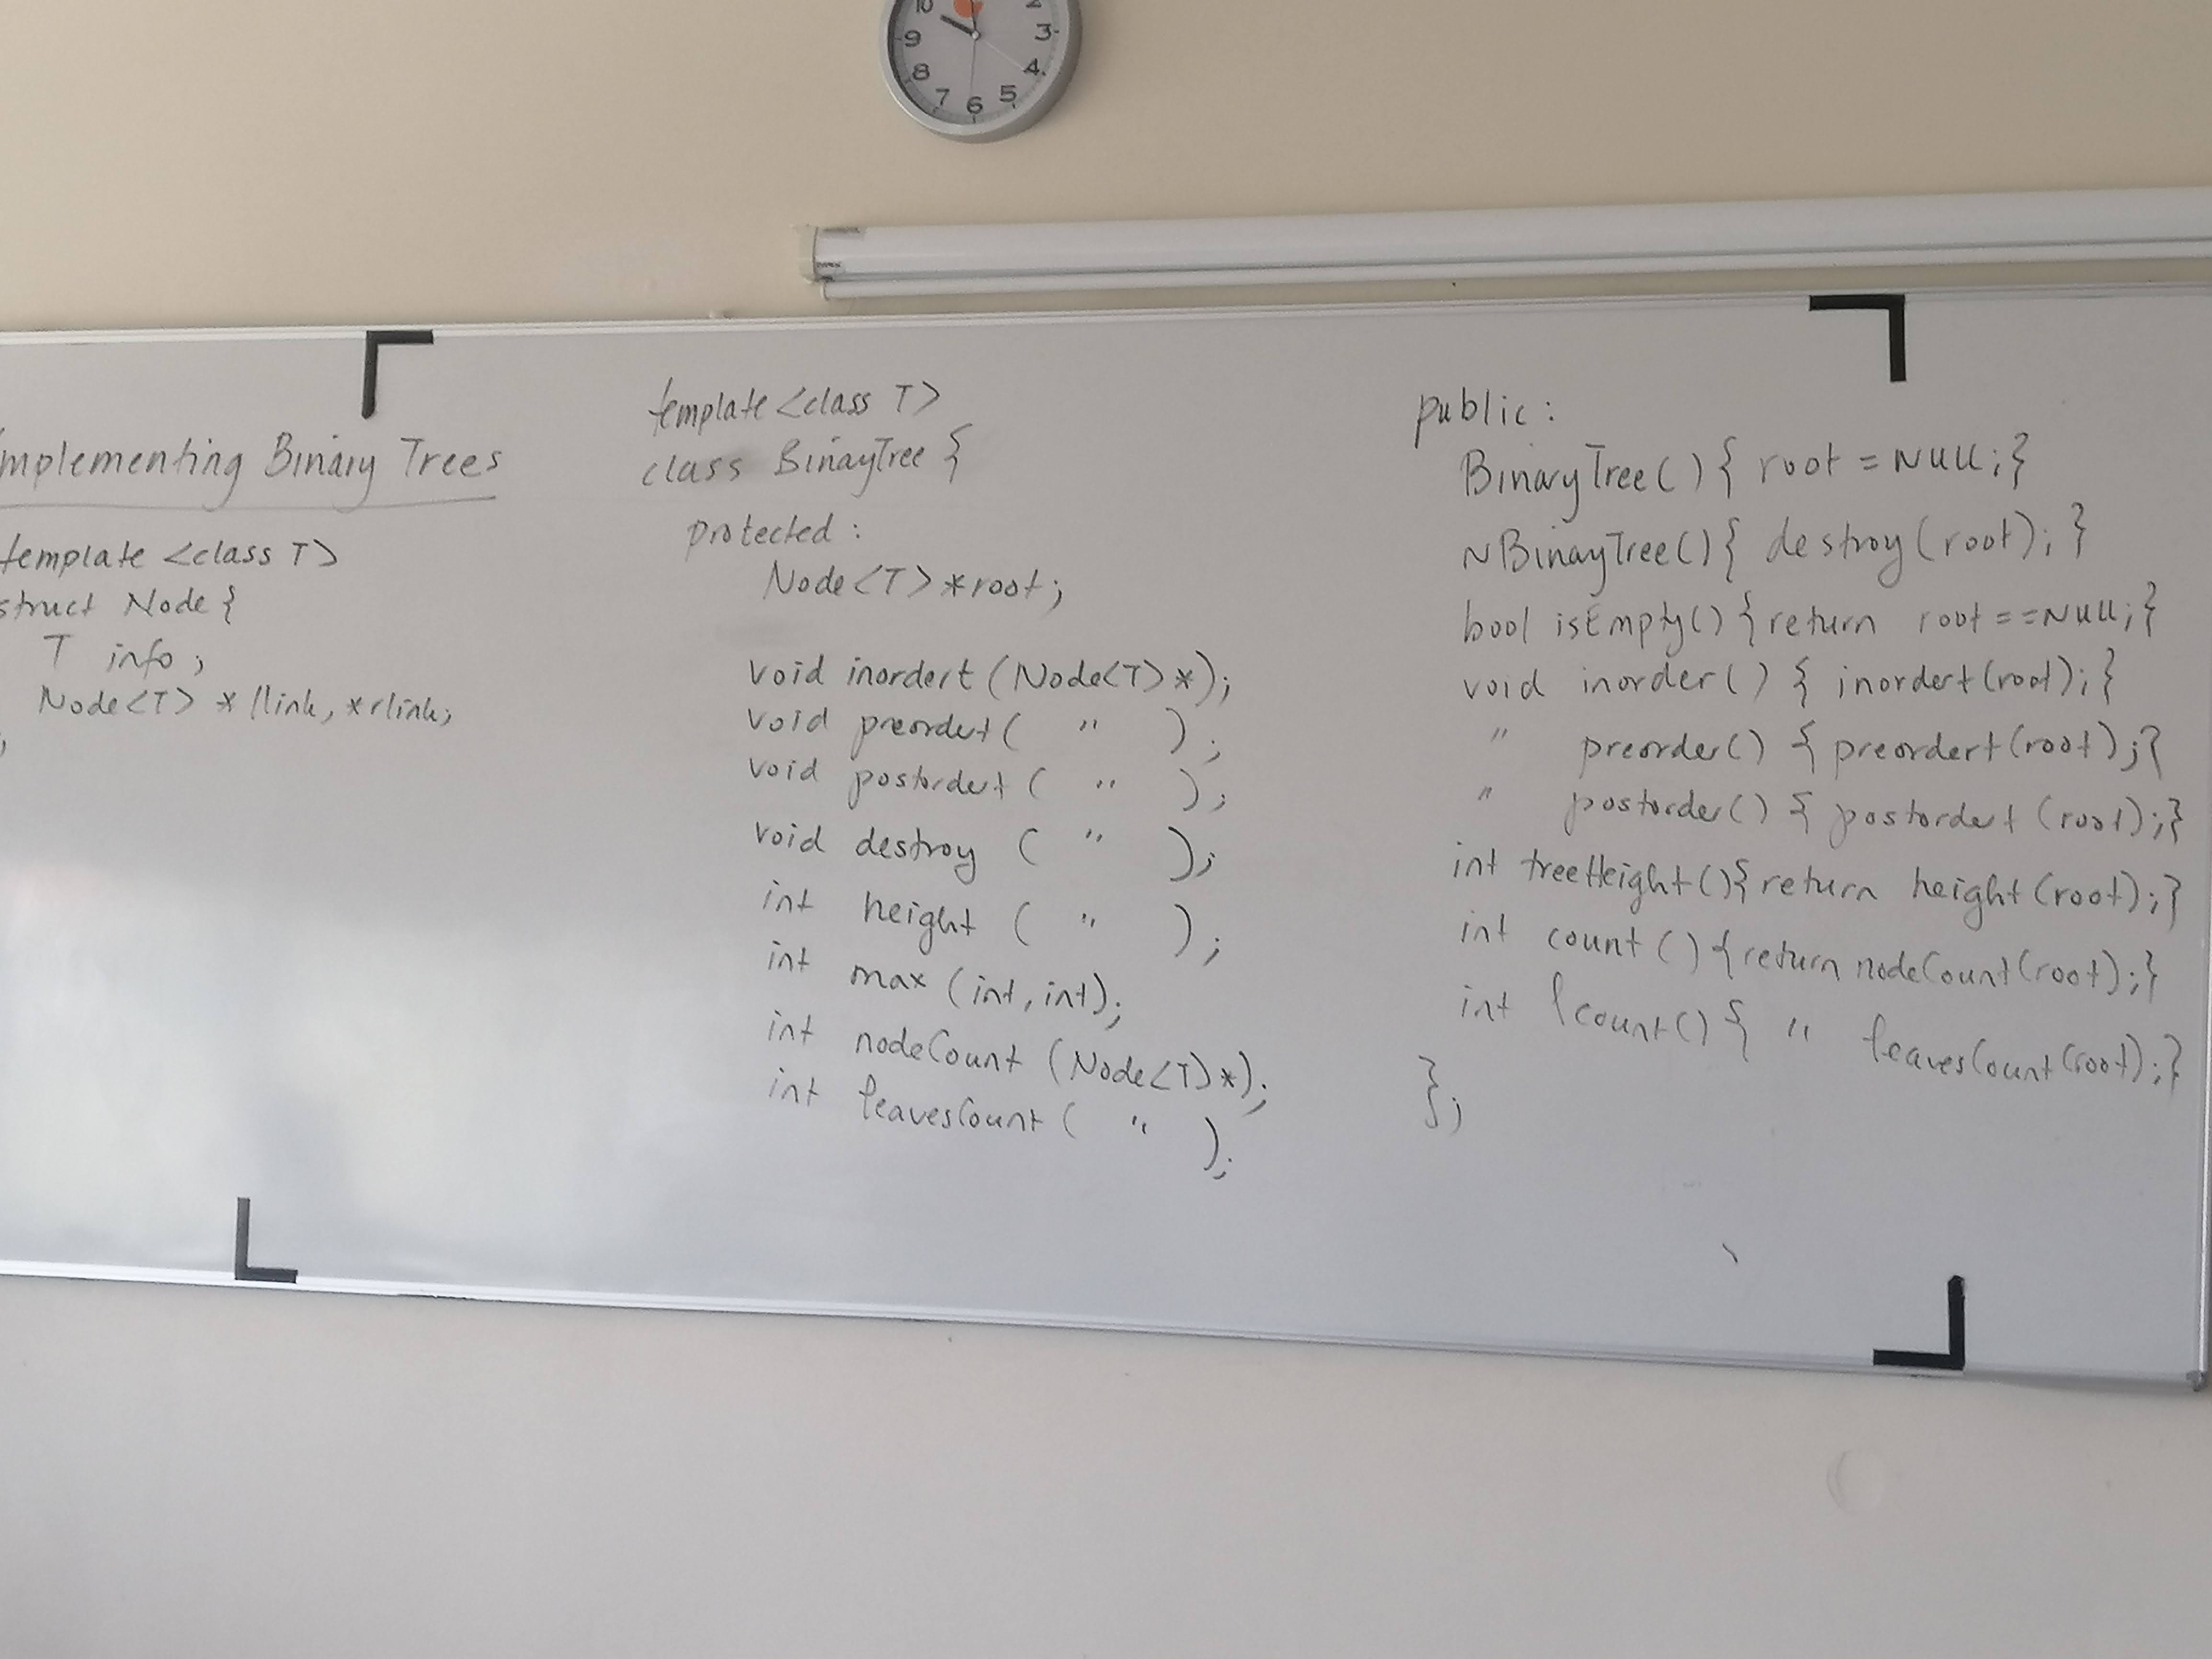 10 2
9 3
8 4
7 6 5
mplementing Binary Trees
template <class T>
struct Node {
T info;
Node<T> *llink, *rlink;
;
template <class T>
class BinayTree {
protected:
Node<T> *root;
void inordert (Node<T> *);
void preordert ( " );
void postordert ( " );
void destroy ( " );
int height ( " );
int max (int, int);
int nodeCount (Node<T> *);
int leavesCount ( " );
public:
BinaryTree() { root = NULL; }
~BinayTree() { destroy (root); }
bool isEmpty() { return root == NULL; }
void inorder() { inordert (root); }
" preorder() { preordert (root); }
" postorder() { postordert (root); }
int treeHeight() { return height (root); }
int count() { return nodeCount (root); }
int lcount() { " leavesCount (root); }
};